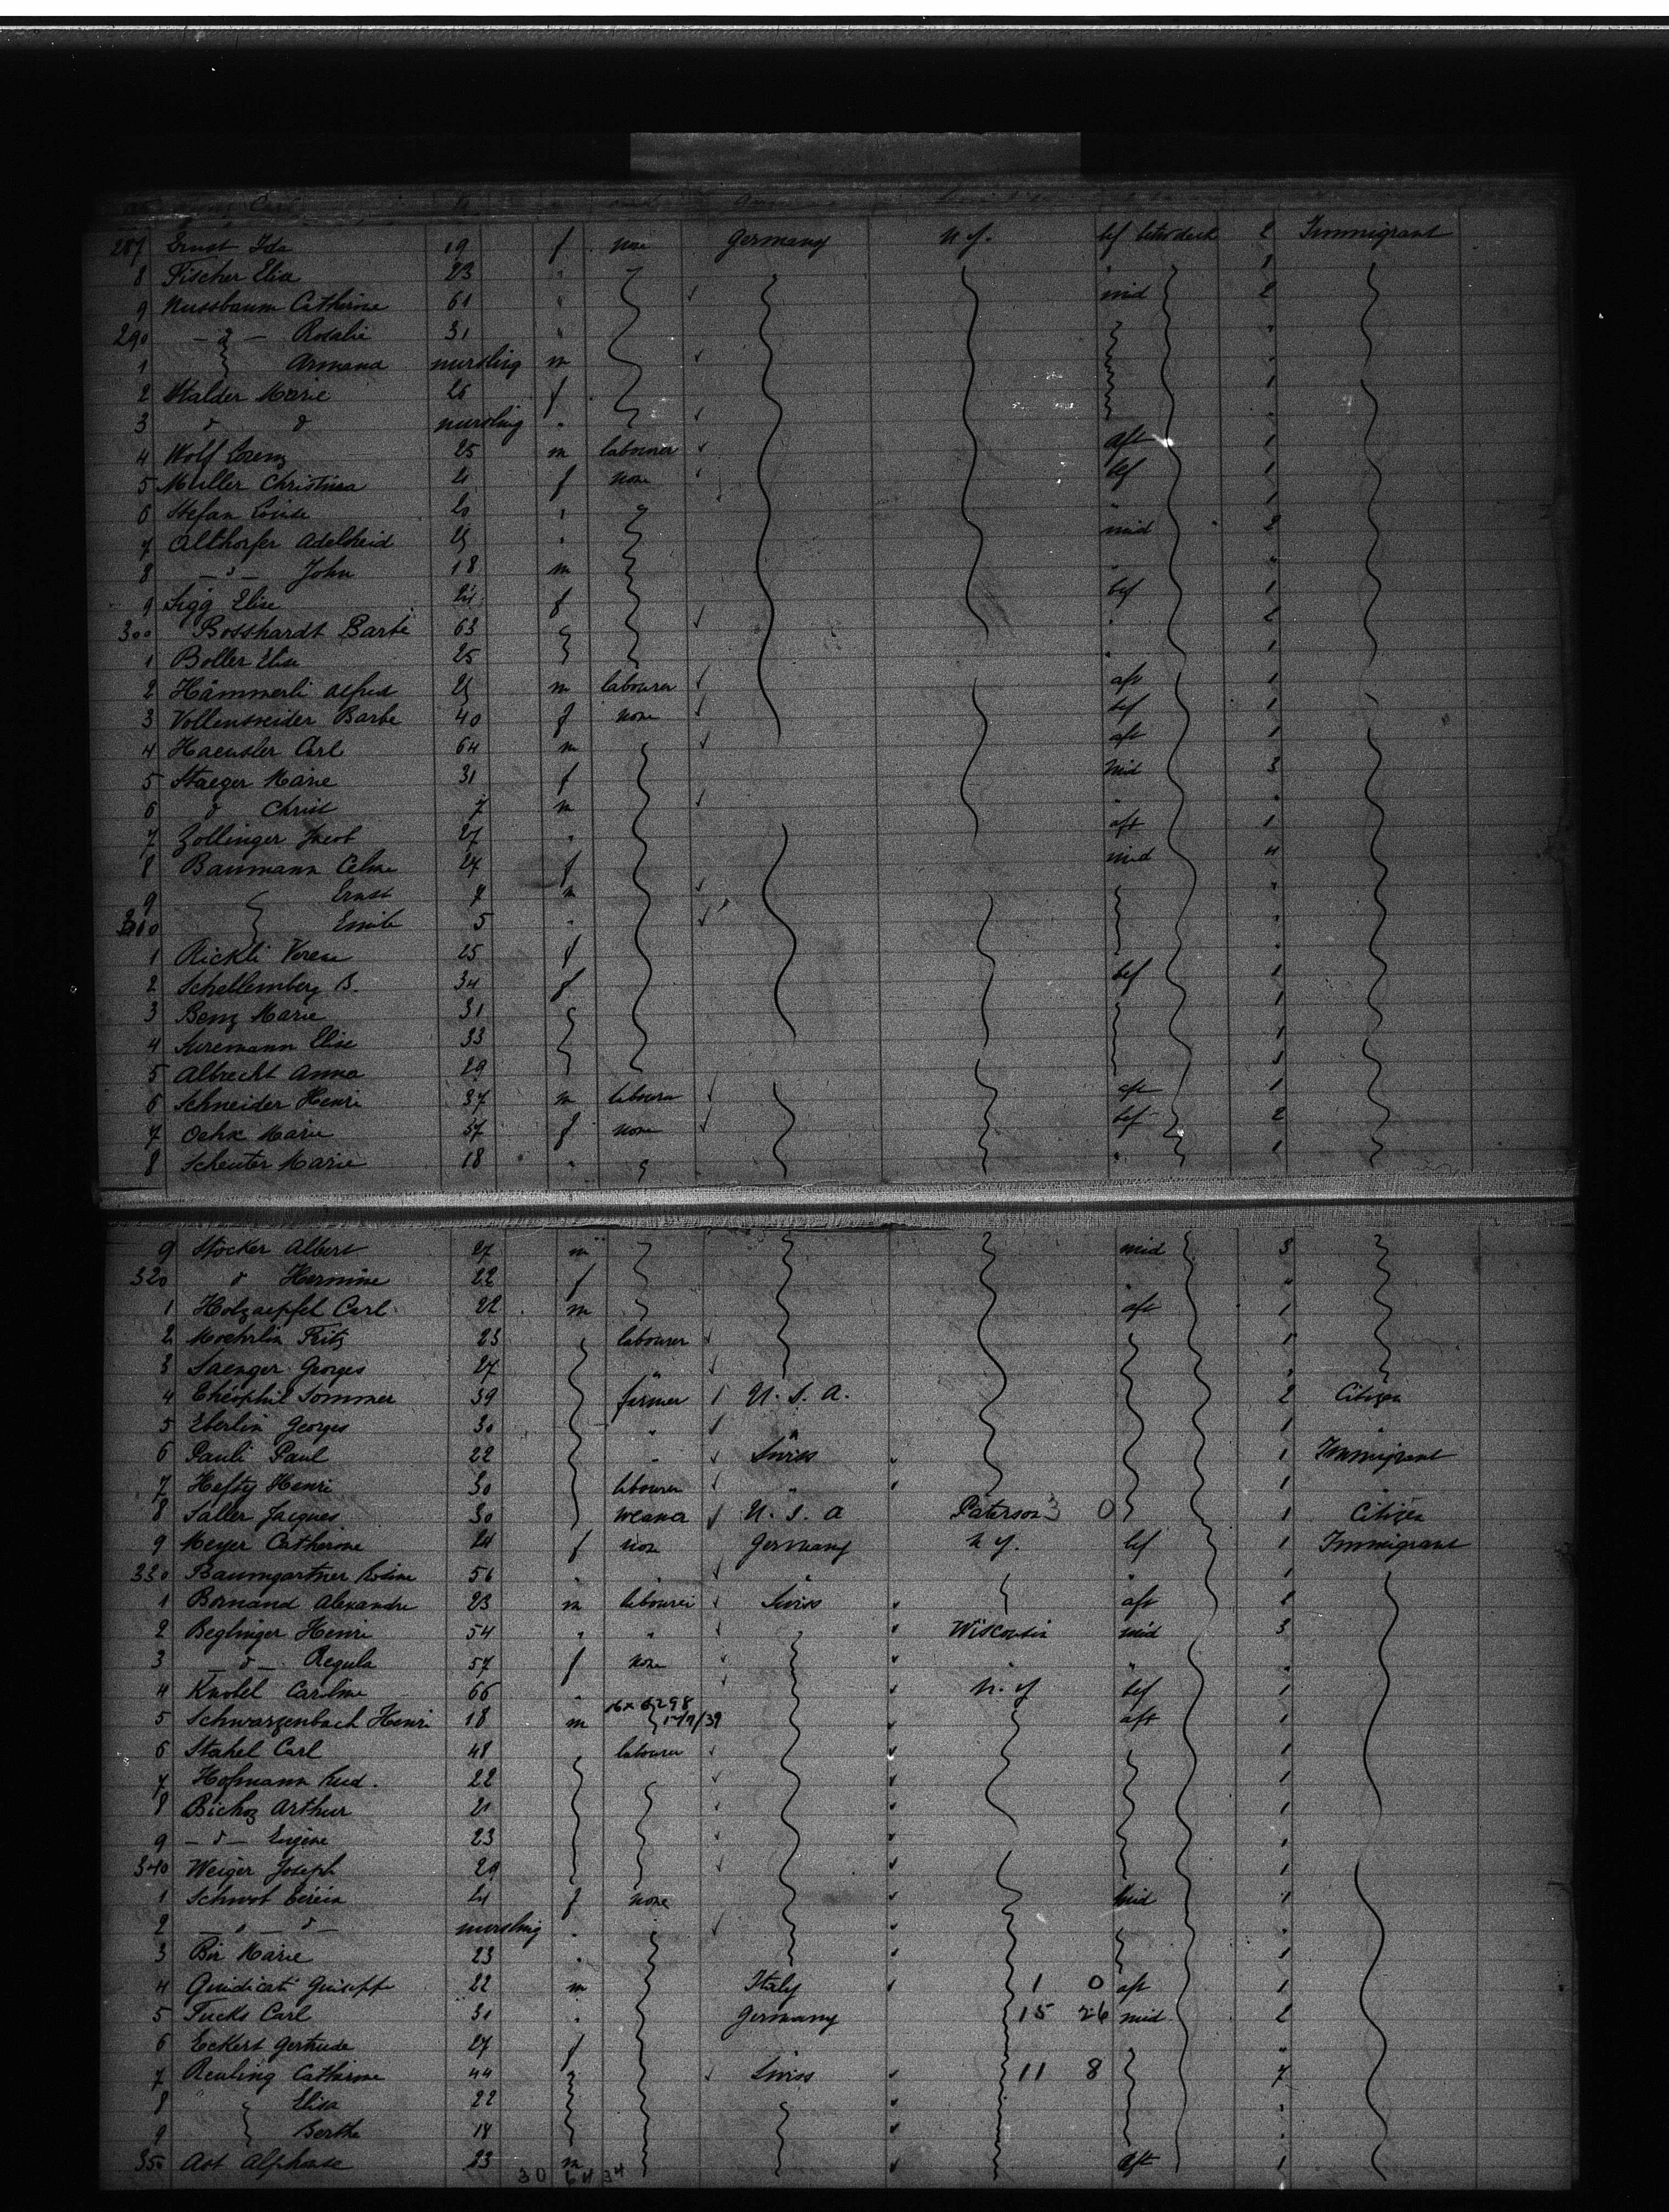 287 Ernst Ida 19 f none Germany N.Y. bef betw deck 2 Immigrant
8 Fischer Elise 23 " " 1
9 Nussbaum Catherine 61 " mid 2
290 - d - Rosalie 31 " "
1 Armand nursling m "
2 Stalder Marie 26 f 1
3 d d nursling " "
4 Wolf Lorenz 25 m labourer aft 1
5 Muller Christina 21 f none bef 1
6 Stefan Louise 20 " " 1
7 Althorfer Adelheid " mid 2
8 - d - John 18 m " "
9 Sigg Elise 24 f bef 1
300 Bosshardt Barbe 63 " 2
1 Boller Elise 25 " 1
2 Hämmerli Alfred m labourer aft 1
3 Vollenweider Barbe 40 f none bef 1
4 Haensler Carl 64 m aft 1
5 Staeger Marie 31 f mid 3
6 d Christ 7 m " "
7 Zollinger Jacob 27 " aft 1
8 Baumann Celine 27 f mid 4
9 Ernst 7 m "
310 Emile 5 " "
1 Rickli Verena 25 f "
2 Schellemberg B. 34 f bef 1
3 Benz Marie 31 1
4 Suremann Elise 33 1
5 Albrecht Anna 29 1
6 Schneider Henri 37 m labourer aft 1
7 Marie 57 f none bef 2
8 Scheuter Marie 18 " " 1
9 Stocker Albert 27 m mid 3
320 d Hermine 22 f " "
1 Holzaepfel Carl 22 m aft 1
2 Moehrlin Fritz 23 labourer 1
3 Saenger Georges 27 " "
4 Théophil Sommer 39 farmer U.S.A. 2 Citizen
5 Eberlin Georges 30 " " 1 "
6 Pauli Paul 22 " Swiss 1 Immigrant
7 Hefty Henri 30 labourer " 1 "
8 Saller Jacques 30 weaver U.S.A Paterson 3 0 1 Citizen
9 Meyer Catherine 24 f none Germany N.Y. bef 1 Immigrant
330 Baumgartner Rosine 56 " " " " 1
1 Bornand Alexandre 23 m labourer Swiss aft 1
2 Beglinger Henri 54 " " Wisconsin mid 3
3 - d - Regula 57 f none " " "
4 Knobel Caroline 66 " N.Y bef 1
5 Schwarzenbach Henri 18 m aft 1
6 Stahel Carl 48 labourer 1
7 Hofmann Rud. 22 1
8 Bichoz Arthur 21 1
9 - d - Eugène 23 1
340 Weiger Joseph 29 1
1 Schwob 21 f none mid 1
2 - d - d - nursling " "
3 Bir Marie 23 " 1
4 Guidicati Guiseppe 22 m Italy 1 0 aft 1
5 Fucks Carl 31 " Germany 15 26 mid 2
6 Eckert Gertrude 27 f "
7 Reuling Catharine 44 Swiss 11 8 7
8 " Elisa 22 "
9 Berthe 18 "
350 Ast Alphonse 23 m aft 1
30 64 34